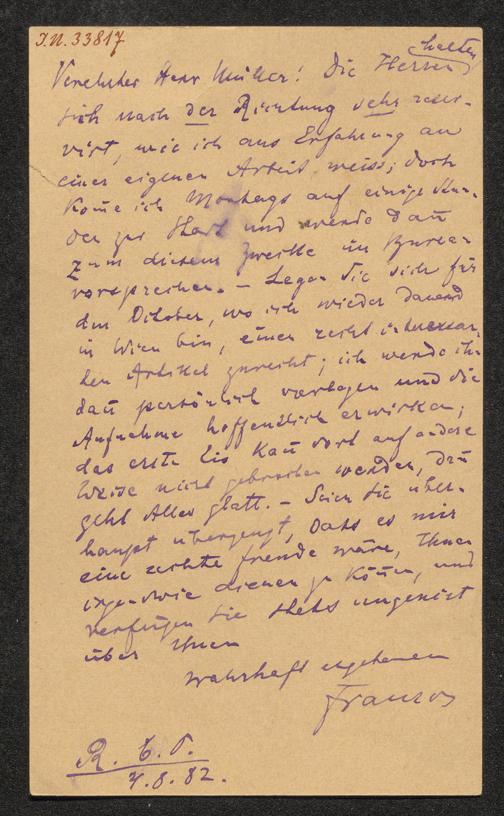 I.N. 33817
Verehrter Herr Müller! Die Herren halten
sich nach der Richtung sehr reser-
virt, wie ich aus Erfahrung an
einer eigenen Arbeit weiss; doch
kom̄e ich Montags auf einige Stun-
den zur Stadt und werde dan̄
zum diesem Zwecke im Bureau
vorsprechen. – Legen Sie sich für
den October, wo ich wieder dauernd
in Wien bin, einen recht interessan-
ten Artikel zurecht; ich werde ihn
dan̄ persönlich vorlegen und die
Aufnahme hoffentlich erwirken;
das erste Eis kan̄ dort auf andere
Weise nicht gebrochen werden, dan̄
geht Alles glatt. – Seien Sie über-
haupt überzeugt, dass es mir
eine rechte Freude wäre, Ihnen
irgendwie dienen zu kön̄en, und
verfügen Sie stets ungenirt
über Ihnen
wahrhaft ergebenen
Franzos
4.8.82.